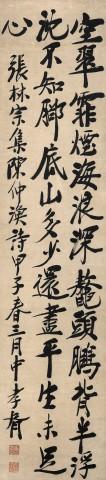 空翠霏煙海浪深鼇頭鵬背半浮
沈不知腳底山多少還盡平生未足
心
張林宗集陳仲溱詩甲子春三月中孝胥